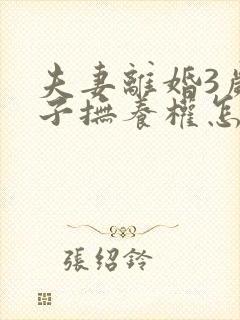 夫妻離婚3歲
子撫養權怎
張紹鈴